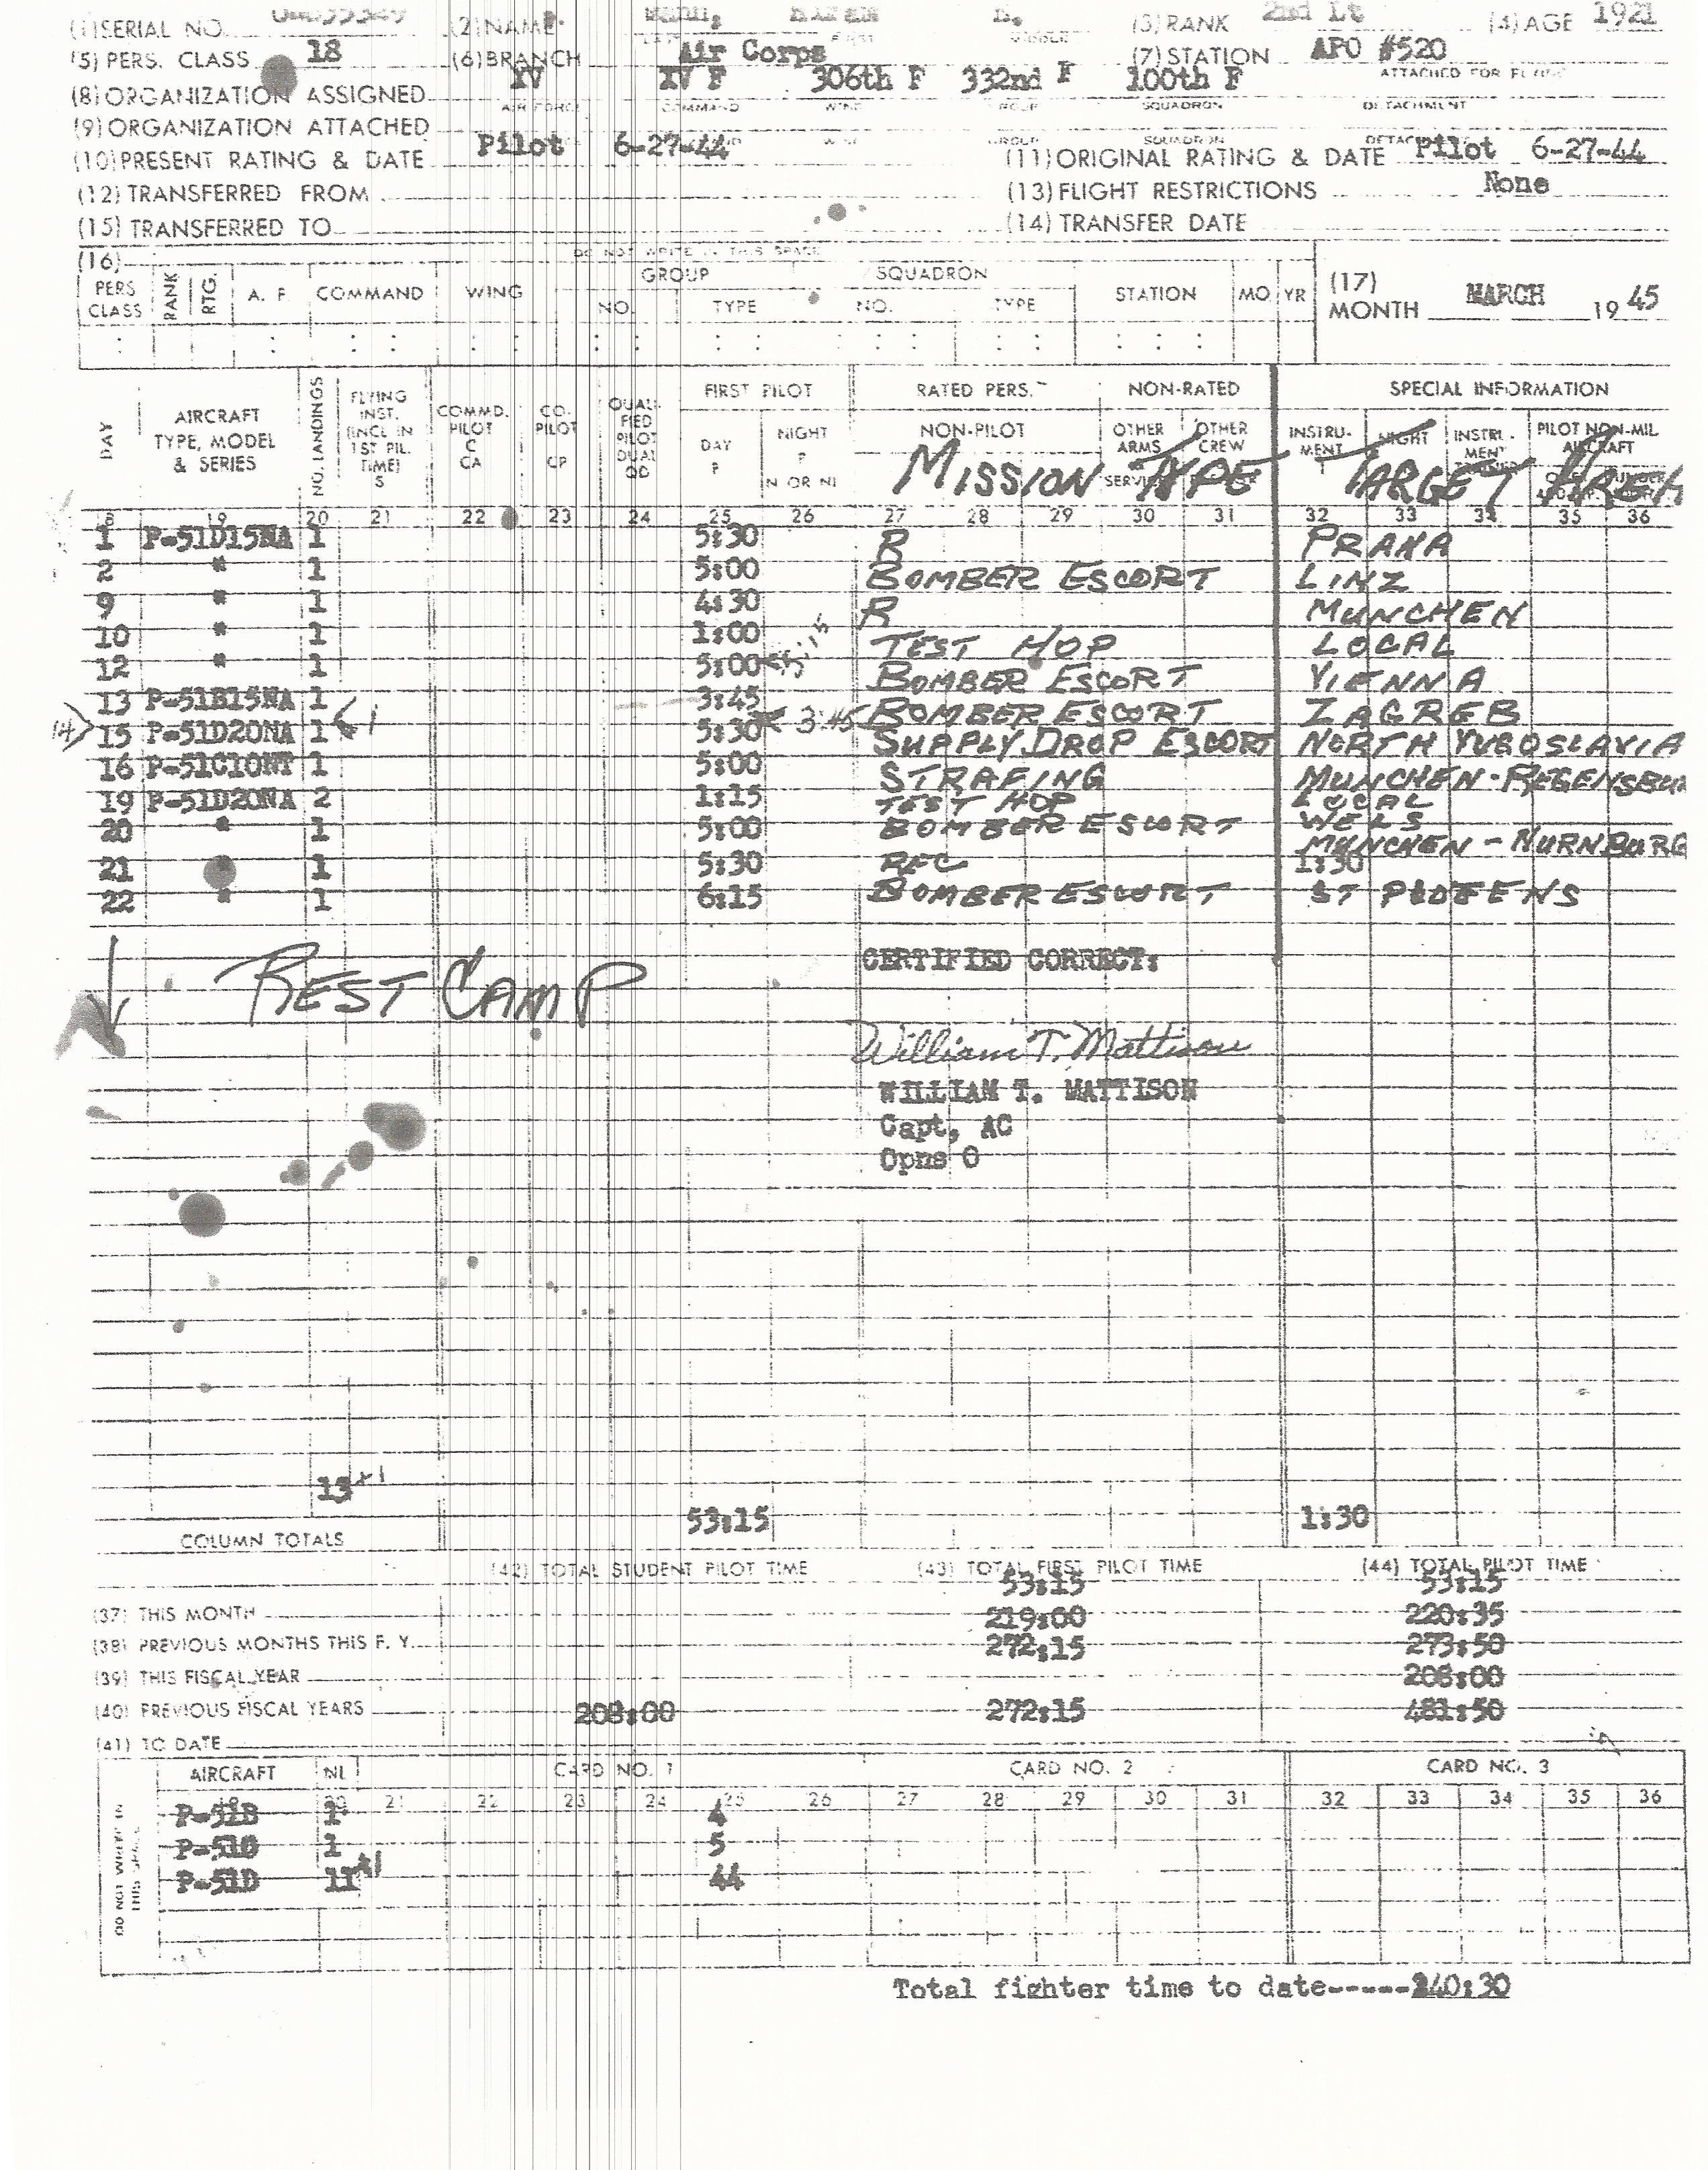 (1) SERIAL NO. (2) NAME (3) RANK 2nd Lt (4) AGE 1921
LAST FIRST MIDDLE
(5) PERS. CLASS 18 (6) BRANCH Air Corps (7) STATION APO #520
(8) ORGANIZATION ASSIGNED XV XV F 306th F 332nd F 100th F ATTACHED FOR FLYING
AIR FORCE COMMAND WING GROUP SQUADRON DETACHMENT
(9) ORGANIZATION ATTACHED
GROUP SQUADRON
(10) PRESENT RATING & DATE Pilot 6-27-44 (11) ORIGINAL RATING & DATE Pilot 6-27-44
(12) TRANSFERRED FROM (13) FLIGHT RESTRICTIONS None
(15) TRANSFERRED TO (14) TRANSFER DATE
(16) DO NOT WRITE IN THIS SPACE
GROUP SQUADRON
PERS CLASS RANK RTG. A. F. COMMAND WING NO. TYPE NO. TYPE STATION MO YR (17) MONTH MARCH 19 45
DAY AIRCRAFT TYPE, MODEL & SERIES NO. LANDINGS FLYING INST. (INCL IN 1ST PIL. TIME) S COMMD. PILOT C CA CO-PILOT CP QUALIFIED PILOT DUAL QD FIRST PILOT DAY P NIGHT P N OR NI RATED PERS. NON-PILOT NON-RATED OTHER ARMS OTHER CREW SPECIAL INFORMATION INSTRUMENT I NIGHT INSTRUMENT PILOT NON-MIL AIRCRAFT
MISSION TYPE TARGET AREA
18 19 20 21 22 23 24 25 26 27 28 29 30 31 32 33 34 35 36
1 P-51D15NA 1 5:30 R PRAHA
2 " 1 5:00 BOMBER ESCORT LINZ
9 " 1 4:30 R MUNCHEN
10 " 1 1:00 TEST HOP LOCAL
12 " 1 5:00 < 5:15 BOMBER ESCORT VIENNA
13 P-51B15NA 1 3:45 BOMBER ESCORT ZAGREB
14> 15 P-51D20NA 1 < 1 5:30 < 3:45 SUPPLY DROP ESCORT NORTH YUGOSLAVIA
16 P-51C10NT 1 5:00 STRAFING MUNCHEN-REGENSBU
19 P-51D20NA 2 1:15 TEST HOP LOCAL
20 " 1 5:00 BOMBER ESCORT WELS
21 1 5:30 REC MUNCHEN - NURNBURG
1:30
22 " 1 6:15 BOMBER ESCORT
REST CAMP
CERTIFIED CORRECT:
William T. Mattison
WILLIAM T. MATTISON
Capt, AC
Opns O
13 +1
53:15 1:30
COLUMN TOTALS
(42) TOTAL STUDENT PILOT TIME (43) TOTAL FIRST PILOT TIME (44) TOTAL PILOT TIME
53:15 53:15
(37) THIS MONTH 219:00 220:35
(38) PREVIOUS MONTHS THIS F. Y. 272:15 273:50
(39) THIS FISCAL YEAR 208:00
(40) PREVIOUS FISCAL YEARS 208:00 272:15 481:50
(41) TO DATE
AIRCRAFT NL CARD NO. 1 CARD NO. 2 CARD NO. 3
19 20 21 22 23 24 25 26 27 28 29 30 31 32 33 34 35 36
P-51B 1 4
P-51C 1 5
P-51D 11 +1 44
DO NOT WRITE IN THIS SPACE
Total fighter time to date-----240:30